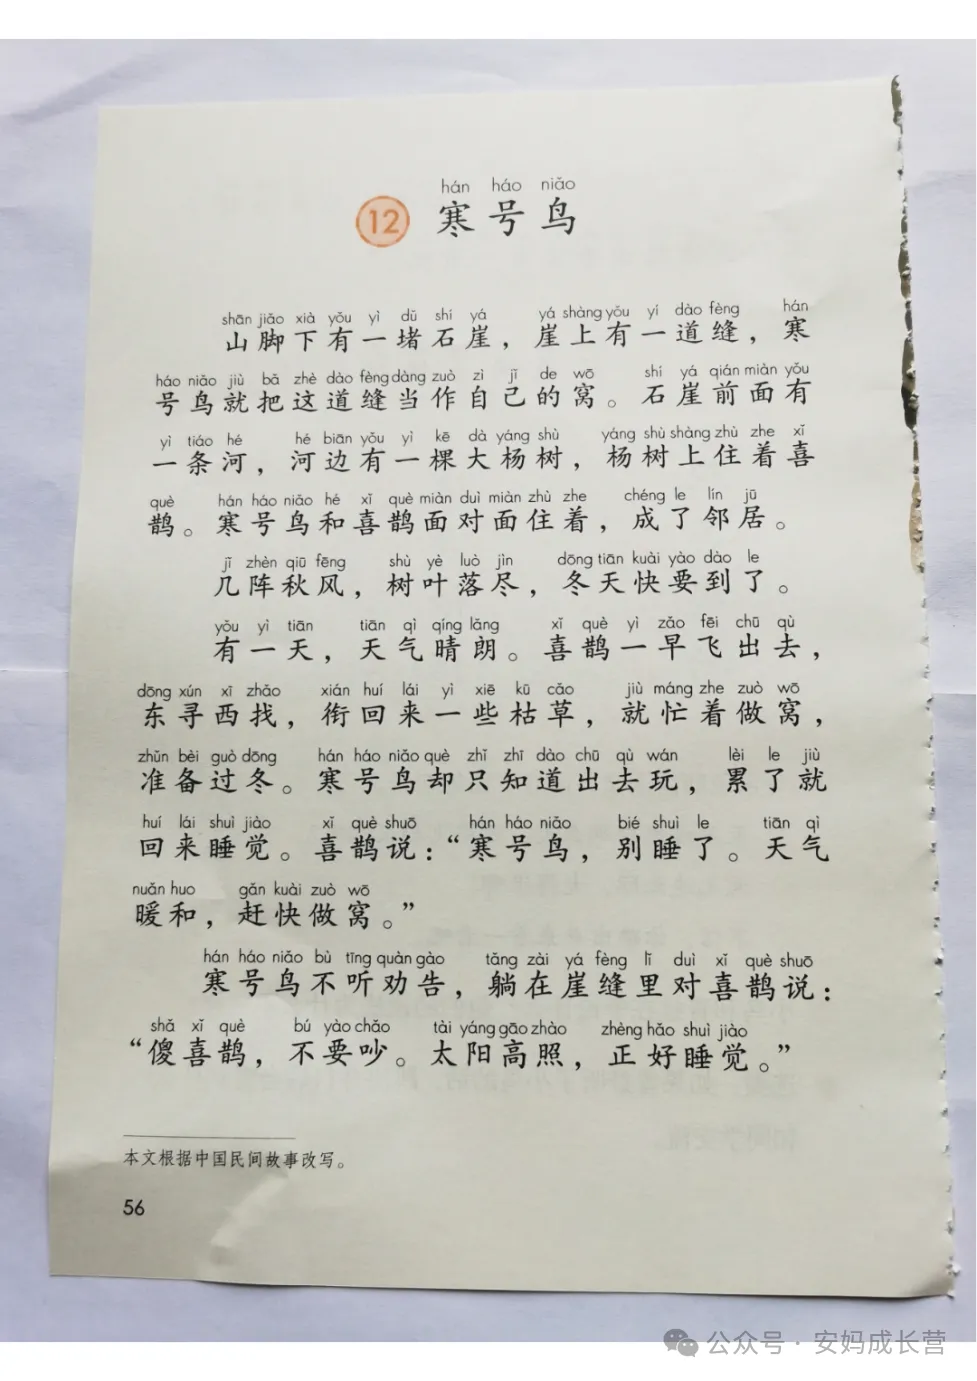 hán háo niǎo
12 寒号鸟
shān jiǎo xià yǒu yì dǔ shí yá yá shàng yǒu yí dào fèng hán
山脚下有一堵石崖，崖上有一道缝，寒
háo niǎo jiù bǎ zhè dào fèng dàng zuò zì jǐ de wō shí yá qián miàn yǒu
号鸟就把这道缝当作自己的窝。石崖前面有
yì tiáo hé hé biān yǒu yì kē dà yáng shù yáng shù shàng zhù zhe xǐ
一条河，河边有一棵大杨树，杨树上住着喜
què hán háo niǎo hé xǐ què miàn duì miàn zhù zhe chéng le lín jū
鹊。寒号鸟和喜鹊面对面住着，成了邻居。
jǐ zhèn qiū fēng shù yè luò jìn dōng tiān kuài yào dào le
几阵秋风，树叶落尽，冬天快要到了。
yǒu yì tiān tiān qì qíng lǎng xǐ què yì zǎo fēi chū qù
有一天，天气晴朗。喜鹊一早飞出去，
dōng xún xī zhǎo xián huí lái yì xiē kū cǎo jiù máng zhe zuò wō
东寻西找，衔回来一些枯草，就忙着做窝，
zhǔn bèi guò dōng hán háo niǎo què zhǐ zhī dào chū qù wán lèi le jiù
准备过冬。寒号鸟却只知道出去玩，累了就
huí lái shuì jiào xǐ què shuō hán háo niǎo bié shuì le tiān qì
回来睡觉。喜鹊说：“寒号鸟，别睡了。天气
nuǎn huo gǎn kuài zuò wō
暖和，赶快做窝。”
hán háo niǎo bù tīng quàn gào tǎng zài yá fèng lǐ duì xǐ què shuō
寒号鸟不听劝告，躺在崖缝里对喜鹊说：
shǎ xǐ què bú yào chǎo tài yáng gāo zhào zhèng hǎo shuì jiào
“傻喜鹊，不要吵。太阳高照，正好睡觉。”
本文根据中国民间故事改写。
56
公众号·安妈成长营